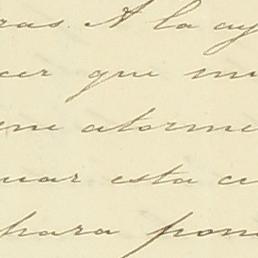 ras. A la ay
cer que mu
me atorme
uar esta cu
para pon